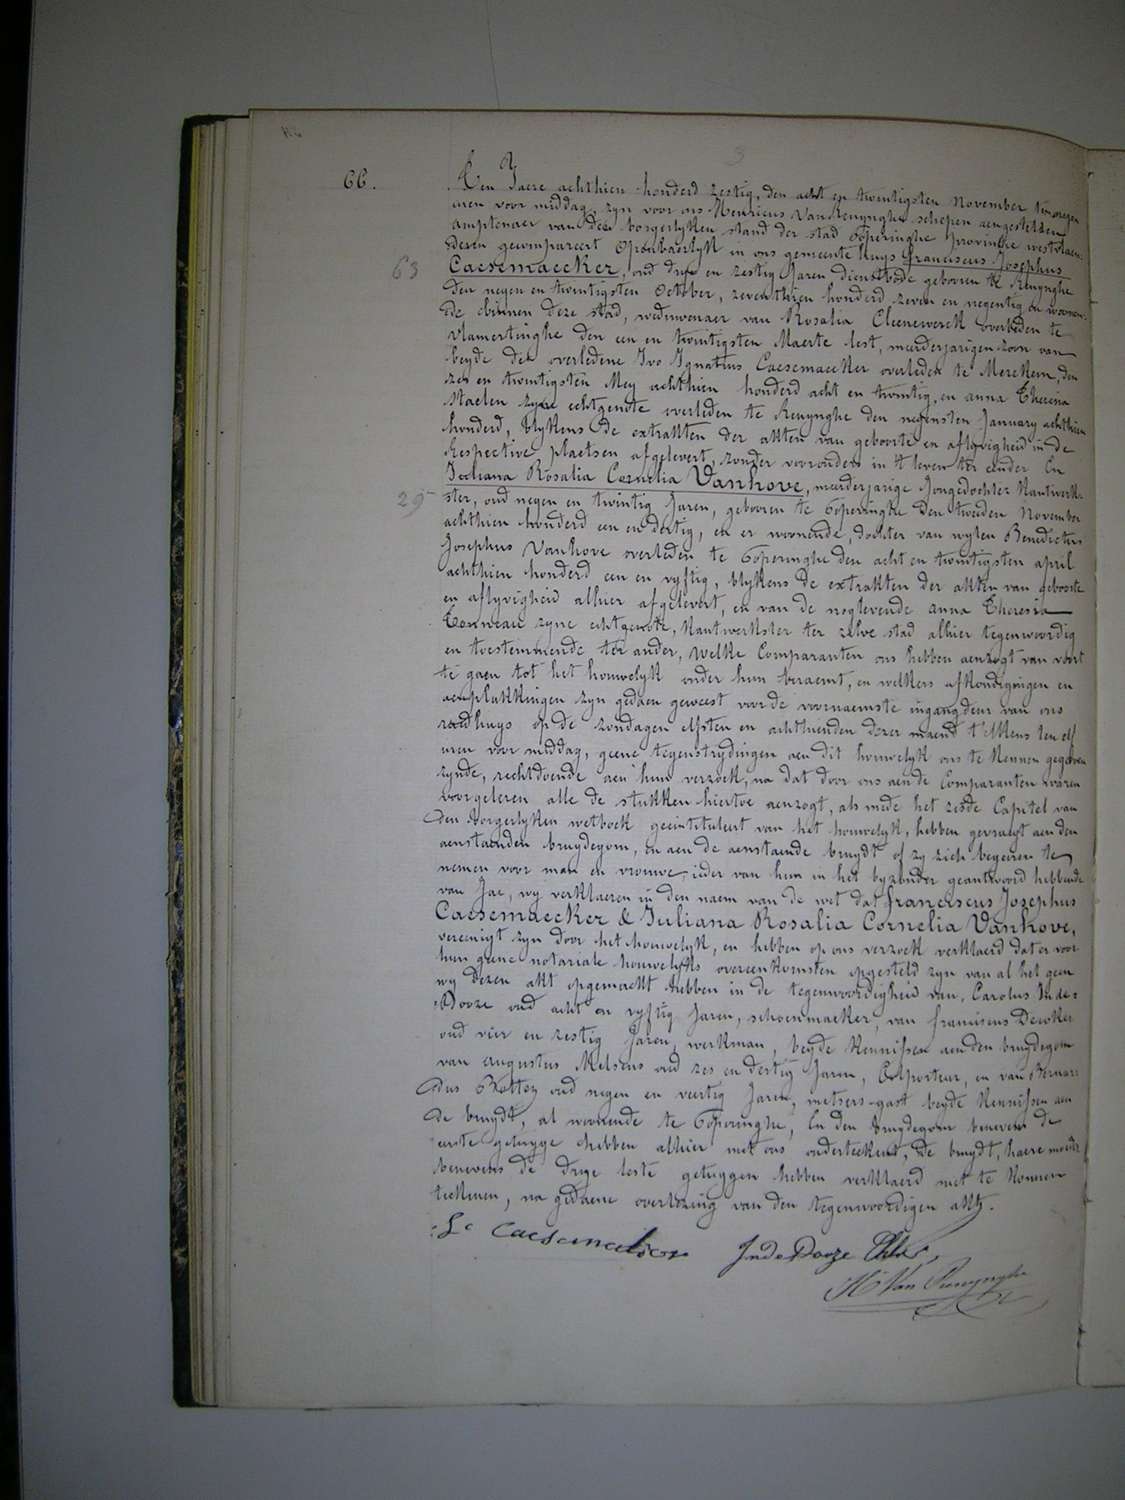 3
66.
Den Jaere achthien honderd zestig, den acht en twintigsten November ten negen
uren voor middag, zyn voor ons Henricus Van Renynghe schepen aengestelden
amptenaer van den borgerlyken stand der stad Poperinghe provincie westvlaen-
deren gecompareert openbaerlyk in ons gemeente huys franciscus Josephus
63
Caesemaecker, oud drye en zestig Jaren dienstbode gebooren te Renynghe
den negen en twintigsten October, zeventhien honderd zeven en negentig en woonen-
de binnen deze stad, weduwenaer van Rosalia Cleenewerck overleden te
vlamertinghe den een en twintigsten Maerte lest, meerderjarigen zoon van
beyde de overledene Ivo Ignatius Caesemaecker overleden te Merckem, den
zes en twintigsten Mey achthien honderd acht en twintig, en anna Theresia
Staelen zyne echtgenote overleden te Renynghe den negensten January achthien
honderd, blykens de extrakten der akten van geboorte en aflyvigheid in de
Respective plaetsen afgelevert, zonder voorouders in 't leven ter eender En
Juliana Rosalia Cornelia Vanhove, meerderjarige Jongedochter Kantwerk-
29
ster, oud negen en twintig Jaren, gebooren te Poperinghe den tweeden November
achthien honderd een en dertig, en er woonende, dochter van wylen Benedictus
Josephus Vanhove overleden te Poperinghe den acht en twintigsten april
achthien honderd een en vyftig, blykens de extrakten der akten van geboorte
en aflyvigheid alhier afgelevert, en van de noglevende anna Theresia
zyne echtgenote, Kantwerkster ter zelve stad alhier tegenwoordig
en toestemmende ter ander, welke Comparanten ons hebben aenzogt van voort
te gaen tot het houwelyk onder hun beraemt, en welkers afkondigingen en
aenplakkingen zyn gedaen geweest voor de voornaemste ingangdeur van ons
raedhuys op de zondagen elfsten en achthienden dezer maend t'elkens ten elf
uren voor middag, geene tegenstrydingen aen dit houwelyk ons te kennen gegeven
zynde, rechtdoende aen hun verzoek, na dat door ons aen de Comparanten waren
voorgelezen alle de stukken hiertoe aenzogt, als mede het zesde Capitel van
den Borgerlyken wetboek geïntituleert van het houwelyk, hebben gevraegt aen den
aenstaenden bruydegom, en aen de aenstaende bruydt of zy zich begeeren te
nemen voor man en vrouwe, ieder van hun in het byzonder geantwoord hebbende
van Jae, wy verklaeren in den naem van de wet dat franciscus Josephus
Caesemaecker & Juliana Rosalia Cornelia Vanhove,
vereenigt zyn door het houwelyk, en hebben op ons verzoek verklaerd dat er voor
hun geene notariale houwelyks overeenkomsten opgesteld zyn van al het geen
wy dezen akt opgemaekt hebben in de tegenwoordigheid van, Carolus Inde
Dooze oud acht en vyftig Jaren, schoenmaeker, van franciscus
oud vier en zestig Jaren, werkman, beyde Kennissen aen den bruydegom
van augustus Melsens oud zes en dertig Jaren, Colporteur, en van Bernar-
dus oud negen en veertig Jaren, metsers-gast beyde Kennissen aen
de bruydt, al woonende te Poperinghe, En den bruydegom benevens de
eerste getuyge hebben alhier met ons onderteekent, de bruydt, haere moeder
benevens de drye leste getuygen hebben verklaerd niet te konnen
teekenen, na gedaene overlezing van den tegenwoordigen akt.
Indedooze
H. Van Renynghe